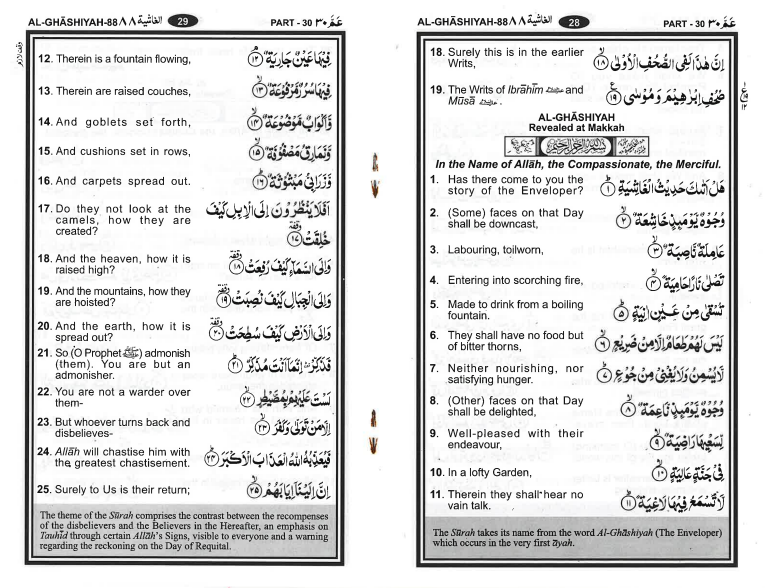 AL-GHĀSHIYAH-88 ٨٨ الغاشية
28
PART - 30 عَمَّ ٣٠
18. Surely this is in the earlier
Writs,
اِنَّ هٰذَا لَفِى الصُّحُفِ الْاُوْلٰى ۙ ١٨
19. The Writs of Ibrāhīm and
Mūsā .
صُحُفِ اِبْرٰهِيْمَ وَمُوْسٰى ١٩
AL-GHĀSHIYAH
Revealed at Makkah
In the Name of Allāh, the Compassionate, the Merciful.
1. Has there come to you the
story of the Enveloper?
هَلْ اَتٰىكَ حَدِيْثُ الْغَاشِيَةِ ١
2. (Some) faces on that Day
shall be downcast,
وُجُوْهٌ يَّوْمَئِذٍ خَاشِعَةٌ ٢
3. Labouring, toilworn,
عَامِلَةٌ نَّاصِبَةٌ ٣
4. Entering into scorching fire,
تَصْلٰى نَارًا حَامِيَةً ٤
5. Made to drink from a boiling
fountain.
تُسْقٰى مِنْ عَيْنٍ اٰنِيَةٍ ٥
6. They shall have no food but
of bitter thorns,
لَيْسَ لَهُمْ طَعَامٌ اِلَّا مِنْ ضَرِيْعٍ ٦
7. Neither nourishing, nor
satisfying hunger.
لَّا يُسْمِنُ وَلَا يُغْنِىْ مِنْ جُوْعٍ ٧
8. (Other) faces on that Day
shall be delighted,
وُجُوْهٌ يَّوْمَئِذٍ نَّاعِمَةٌ ٨
9. Well-pleased with their
endeavour,
لِّسَعْيِهَا رَاضِيَةٌ ٩
10. In a lofty Garden,
فِىْ جَنَّةٍ عَالِيَةٍ ١٠
11. Therein they shall hear no
vain talk.
لَّا تَسْمَعُ فِيْهَا لَاغِيَةً ١١
The Sūrah takes its name from the word Al-Ghāshiyah (The Enveloper)
which occurs in the very first āyah.
AL-GHĀSHIYAH-88 ٨٨ الغاشية
29
PART - 30 عَمَّ ٣٠
12. Therein is a fountain flowing,
فِيْهَا عَيْنٌ جَارِيَةٌ ١٢
13. Therein are raised couches,
فِيْهَا سُرُرٌ مَّرْفُوْعَةٌ ١٣
14. And goblets set forth,
وَّاَكْوَابٌ مَّوْضُوْعَةٌ ١٤
15. And cushions set in rows,
وَّنَمَارِقُ مَصْفُوْفَةٌ ١٥
16. And carpets spread out.
وَّزَرَابِىُّ مَبْثُوْثَةٌ ١٦
17. Do they not look at the
camels, how they are
created?
اَفَلَا يَنْظُرُوْنَ اِلَى الْاِبِلِ كَيْفَ
خُلِقَتْ ١٧
18. And the heaven, how it is
raised high?
وَاِلَى السَّمَآءِ كَيْفَ رُفِعَتْ ١٨
19. And the mountains, how they
are hoisted?
وَاِلَى الْجِبَالِ كَيْفَ نُصِبَتْ ١٩
20. And the earth, how it is
spread out?
وَاِلَى الْاَرْضِ كَيْفَ سُطِحَتْ ٢٠
21. So (O Prophet ﷺ) admonish
(them). You are but an
admonisher.
فَذَكِّرْ اِنَّمَآ اَنْتَ مُذَكِّرٌ ٢١
22. You are not a warder over
them-
لَسْتَ عَلَيْهِمْ بِمُصَۜيْطِرٍ ٢٢
23. But whoever turns back and
disbelieves-
اِلَّا مَنْ تَوَلّٰى وَكَفَرَ ٢٣
24. Allāh will chastise him with
the greatest chastisement.
فَيُعَذِّبُهُ اللّٰهُ الْعَذَابَ الْاَكْبَرَ ٢٤
25. Surely to Us is their return;
اِنَّ اِلَيْنَآ اِيَابَهُمْ ٢٥
The theme of the Sūrah comprises the contrast between the recompenses
of the disbelievers and the Believers in the Hereafter, an emphasis on
Tauhīd through certain Allāh's Signs, visible to everyone and a warning
regarding the reckoning on the Day of Requital.